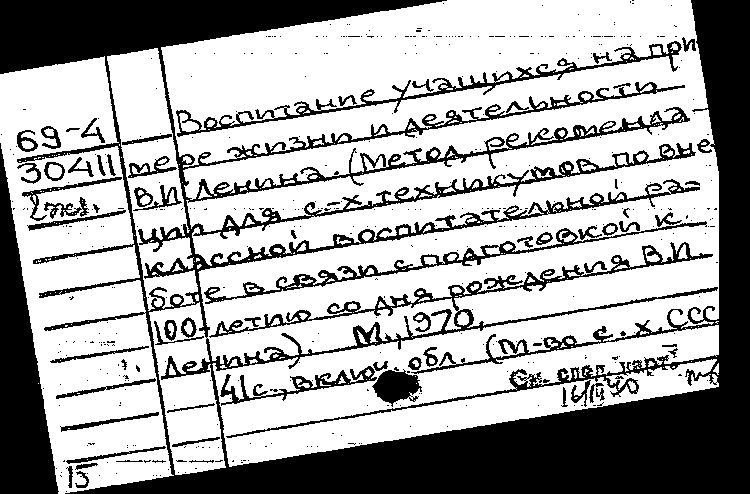 Воспитание учащихся на при
69-4
мере жизни и деятельности
30411
В.И. Ленина. (Метод. рекоменда-
2 экз.
ции для с.-х. техникумов по вне
классной воспитательной ра-
боте в связи с подготовкой к
100-летию со дня рождения В.И.
Ленина). М., 1970.
41с., включ. обл. (М-во с.х. ССС
См. спец. карт.
15